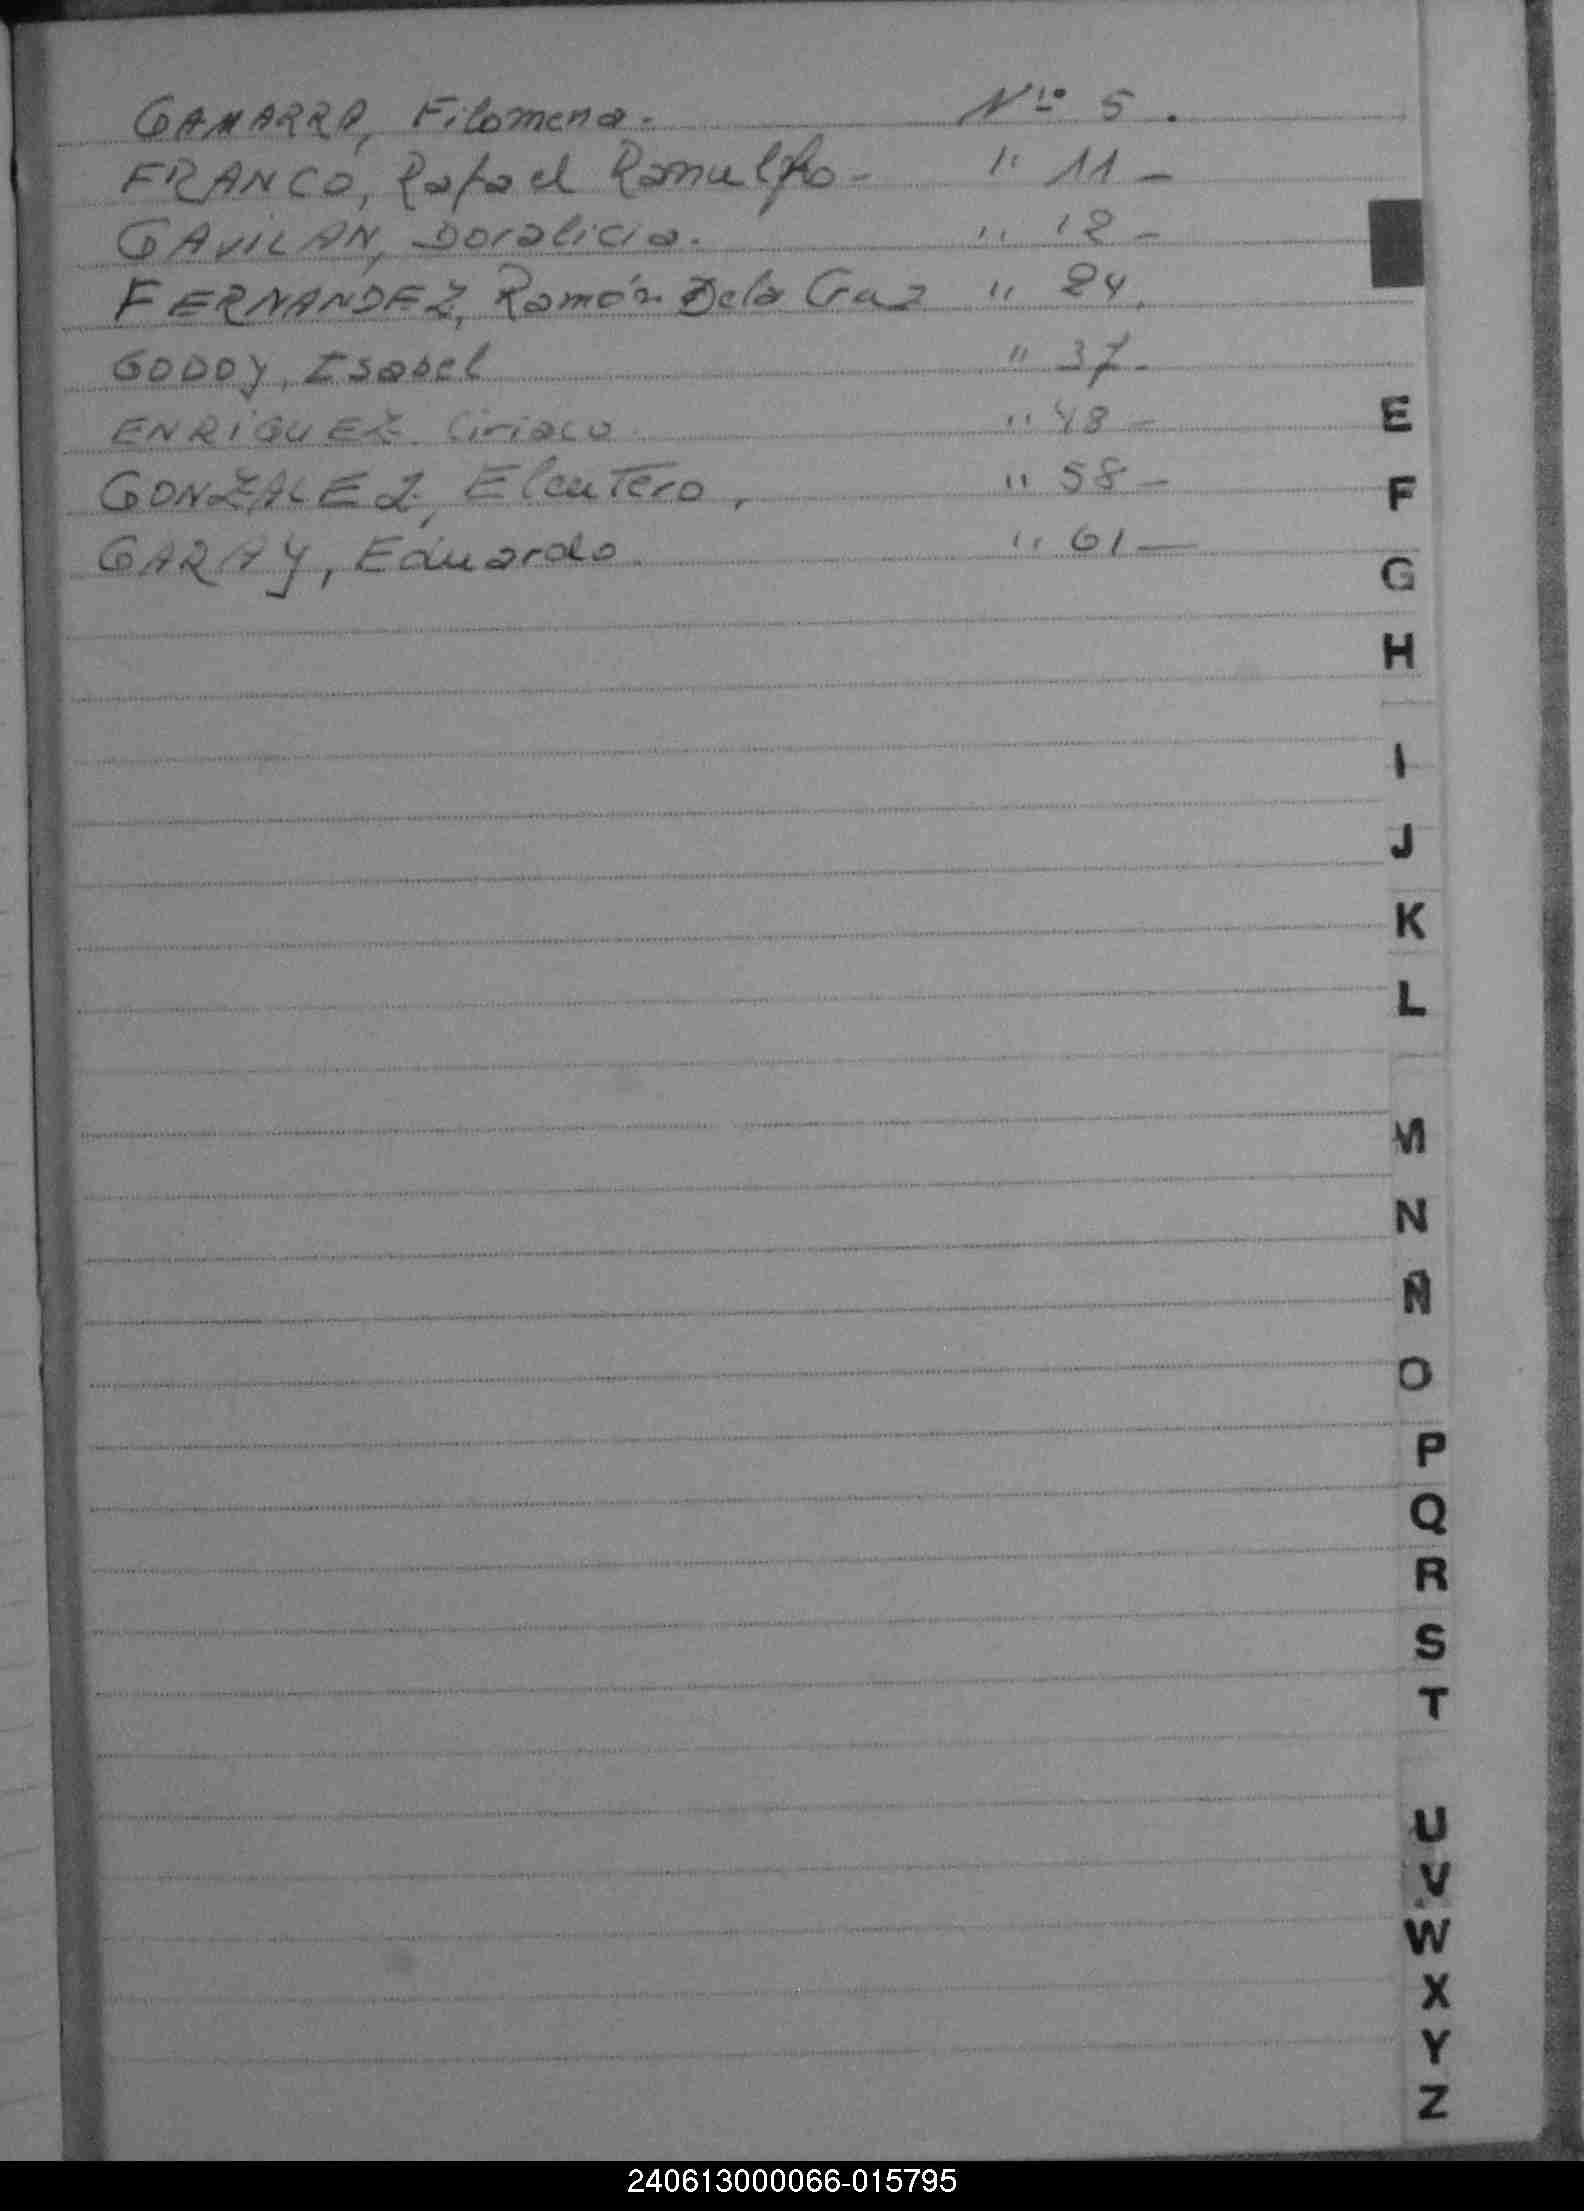 GAMARRA, Filomena. Nro 5.
FRANCO, Rafael Ranulfo - " 11 -
GAVILAN, Doralicia. " 12 -
FERNANDEZ, Ramón Dela Cruz " 24.
GODOY, Isabel " 37.
ENRIQUEZ Ciriaco " 48 -
GONZALEZ, Eleutero, " 58 -
GARAY, Eduardo. " 61 -
E
F
G
H
I
J
K
L
M
N
Ñ
O
P
Q
R
S
T
U
V
W
X
Y
Z
240613000066-015795